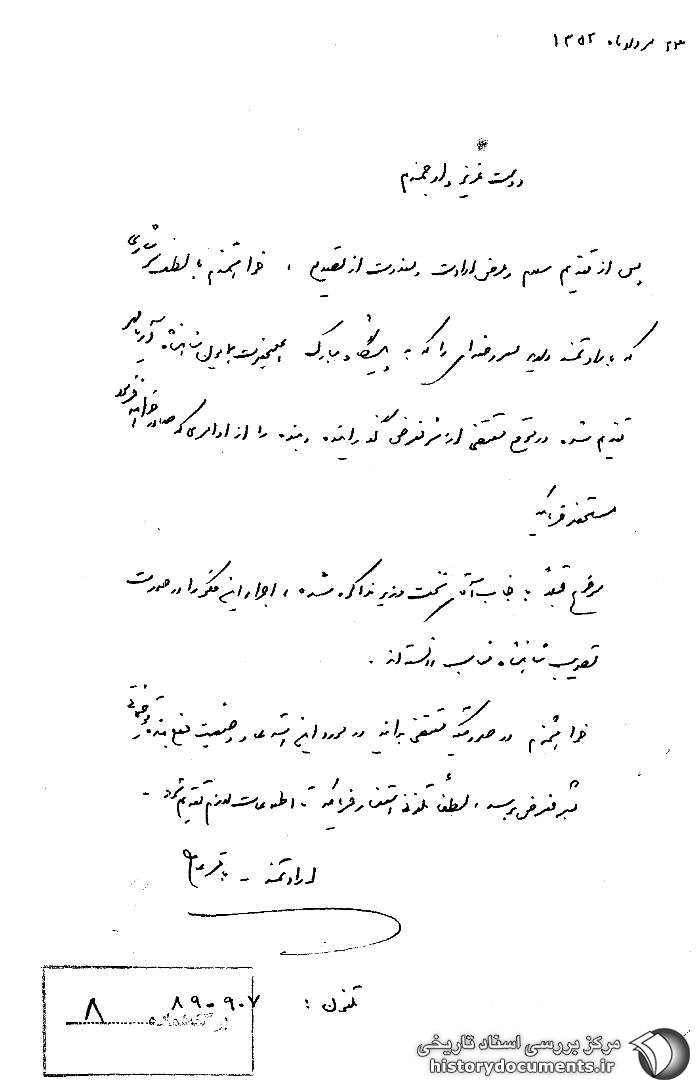 ۲۳ مردادماه ۱۳۵۲
دوست عزیز و ارجمندم
پس از تقدیم سلام و عرض ارادت و معذرت از تصدیع ، خواهشمندم با لطف سرشاری
که با ارادتمند دارید معروضه‌ای را که به پیشگاه مبارک اعلیحضرت همایون شاهنشاه آریامهر
تقدیم شده در موقع مقتضی از شرفعرض گذرانیده و بنده را از اوامری که صادر خواهند فرمود
مستحضر فرمایید
موضوع قبلاً با جناب آقای نخست وزیر مذاکره شده ، اجرای این فکر را در صورت
تصویب شاهنشاه مناسب دانسته‌اند .
خواهشمندم در صورتیکه مقتضی بدانید در مورد این استدعا و وضعیت بنده توضیحاتی
بشرفعرض برسد ، لطفاً تلفونی استفسار فرمایید تا اطلاعات لازم تقدیم شود .
ارادتمند -
تلفون : ۸۹۰۹۰۷
برگ شماره ۸
مرکز بررسی اسناد تاریخی
historydocuments.ir